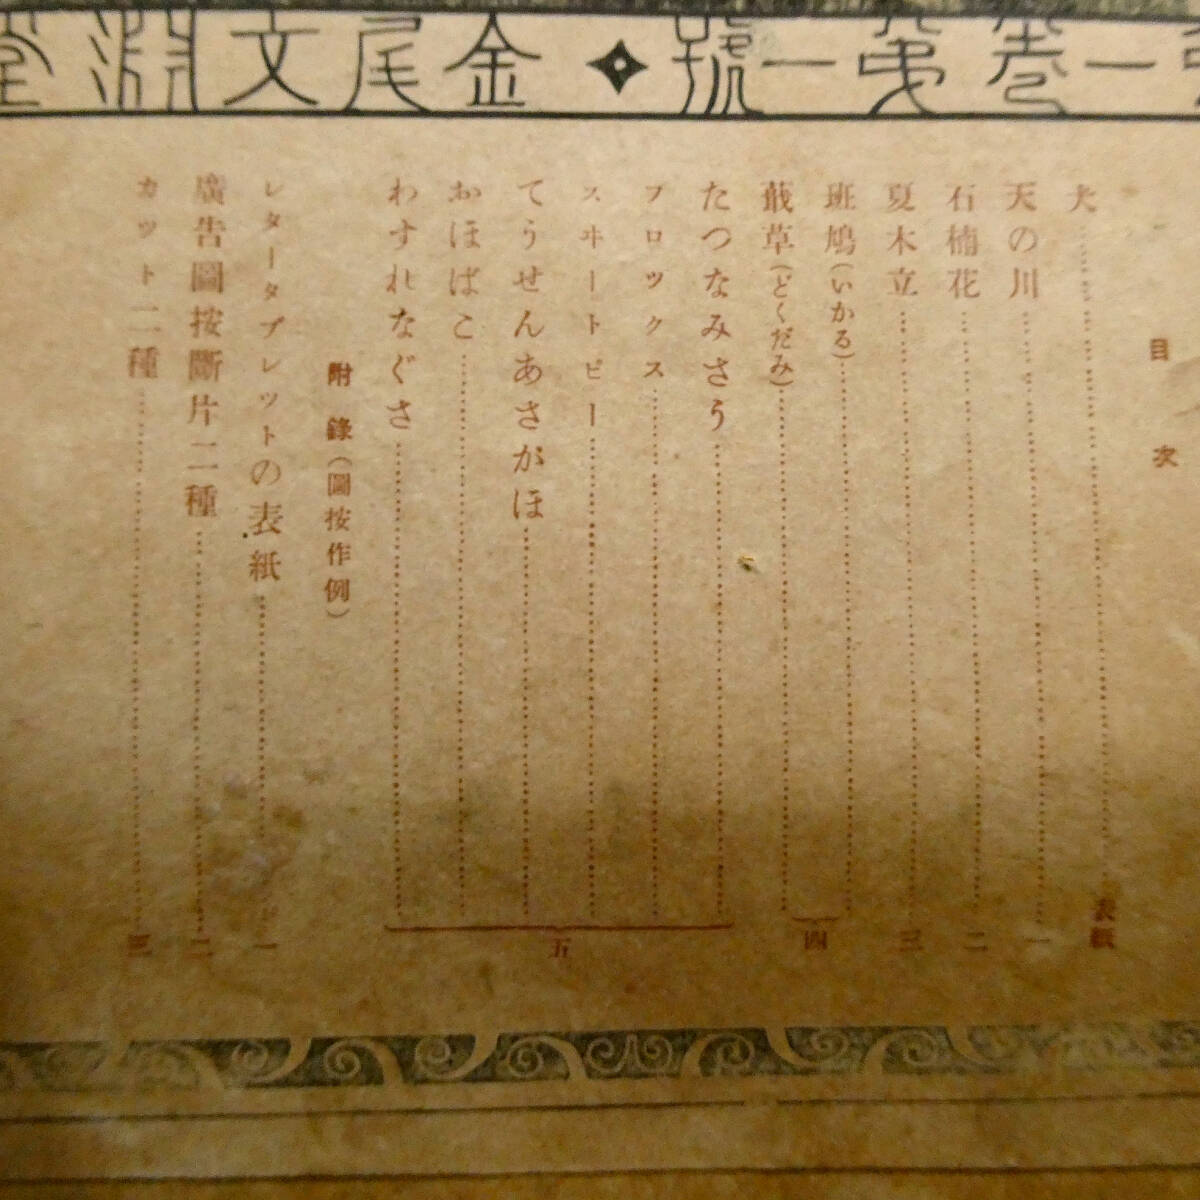 一卷第一號✦金尾文淵堂
目次
犬……表紙
天の川……一
石楠花……二
夏木立……三
班鳩(いかる)……
蕺草(どくだみ)……四
たつなみさう……
フロックス……
スヰートピー……
てうせんあさがほ……五
おほばこ……
わすれなぐさ……
附錄(圖按作例)
レタータブレットの表紙……一
廣告圖按斷片二種……二
カット二種……三